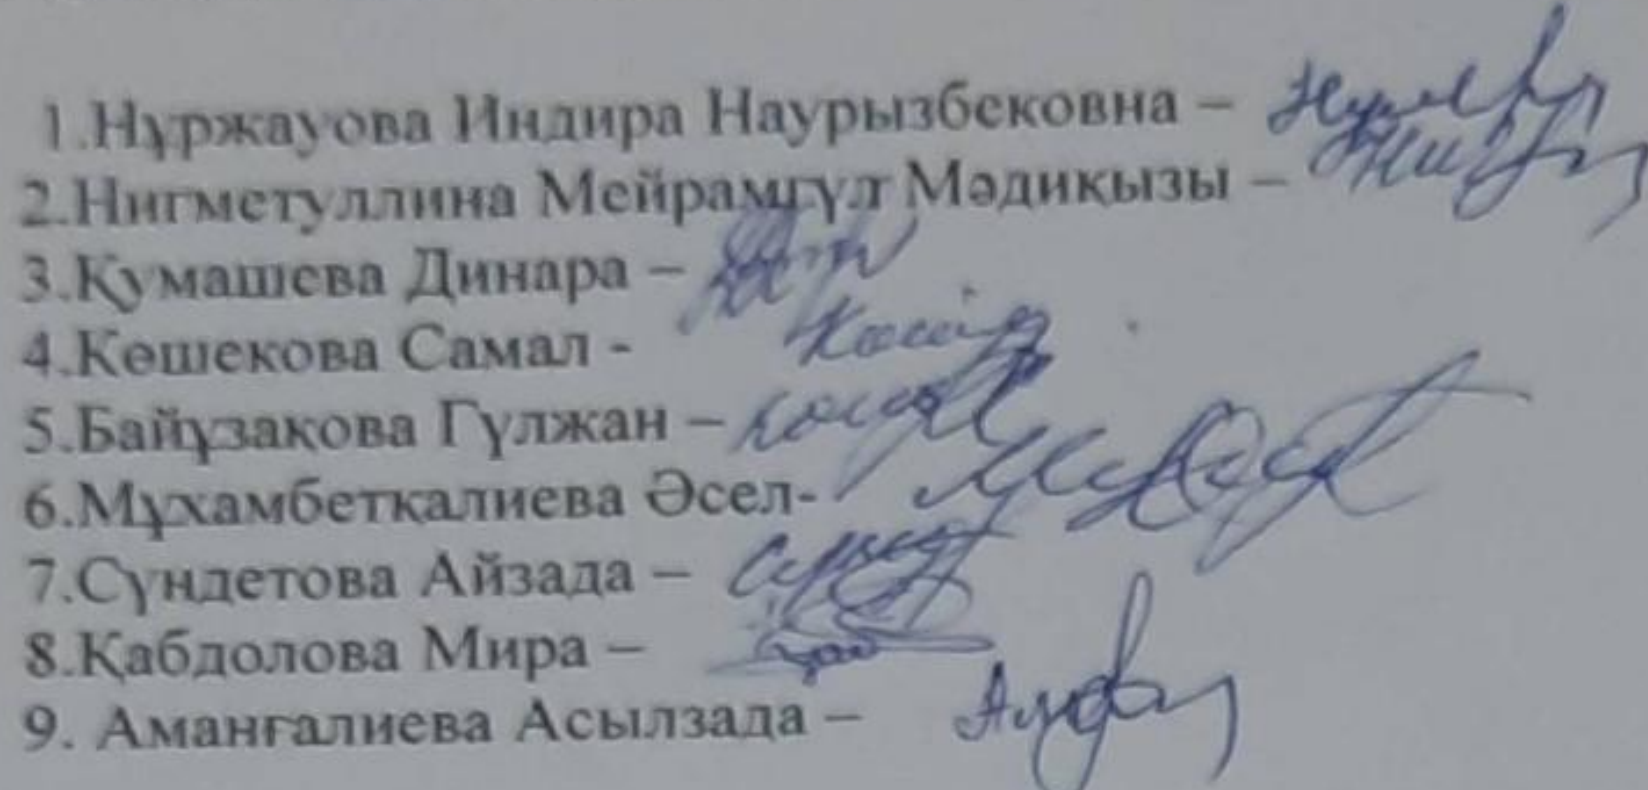 1.Нұржауова Индира Наурызбековна –
2.Нигметуллина Мейрамгүл Мәдиқызы –
3.Құмашева Динара –
4.Көшекова Самал -
5.Байұзақова Гүлжан –
6.Мұхамбетқалиева Әсел-
7.Сүндетова Айзада –
8.Қабдолова Мира –
9. Аманғалиева Асылзада –